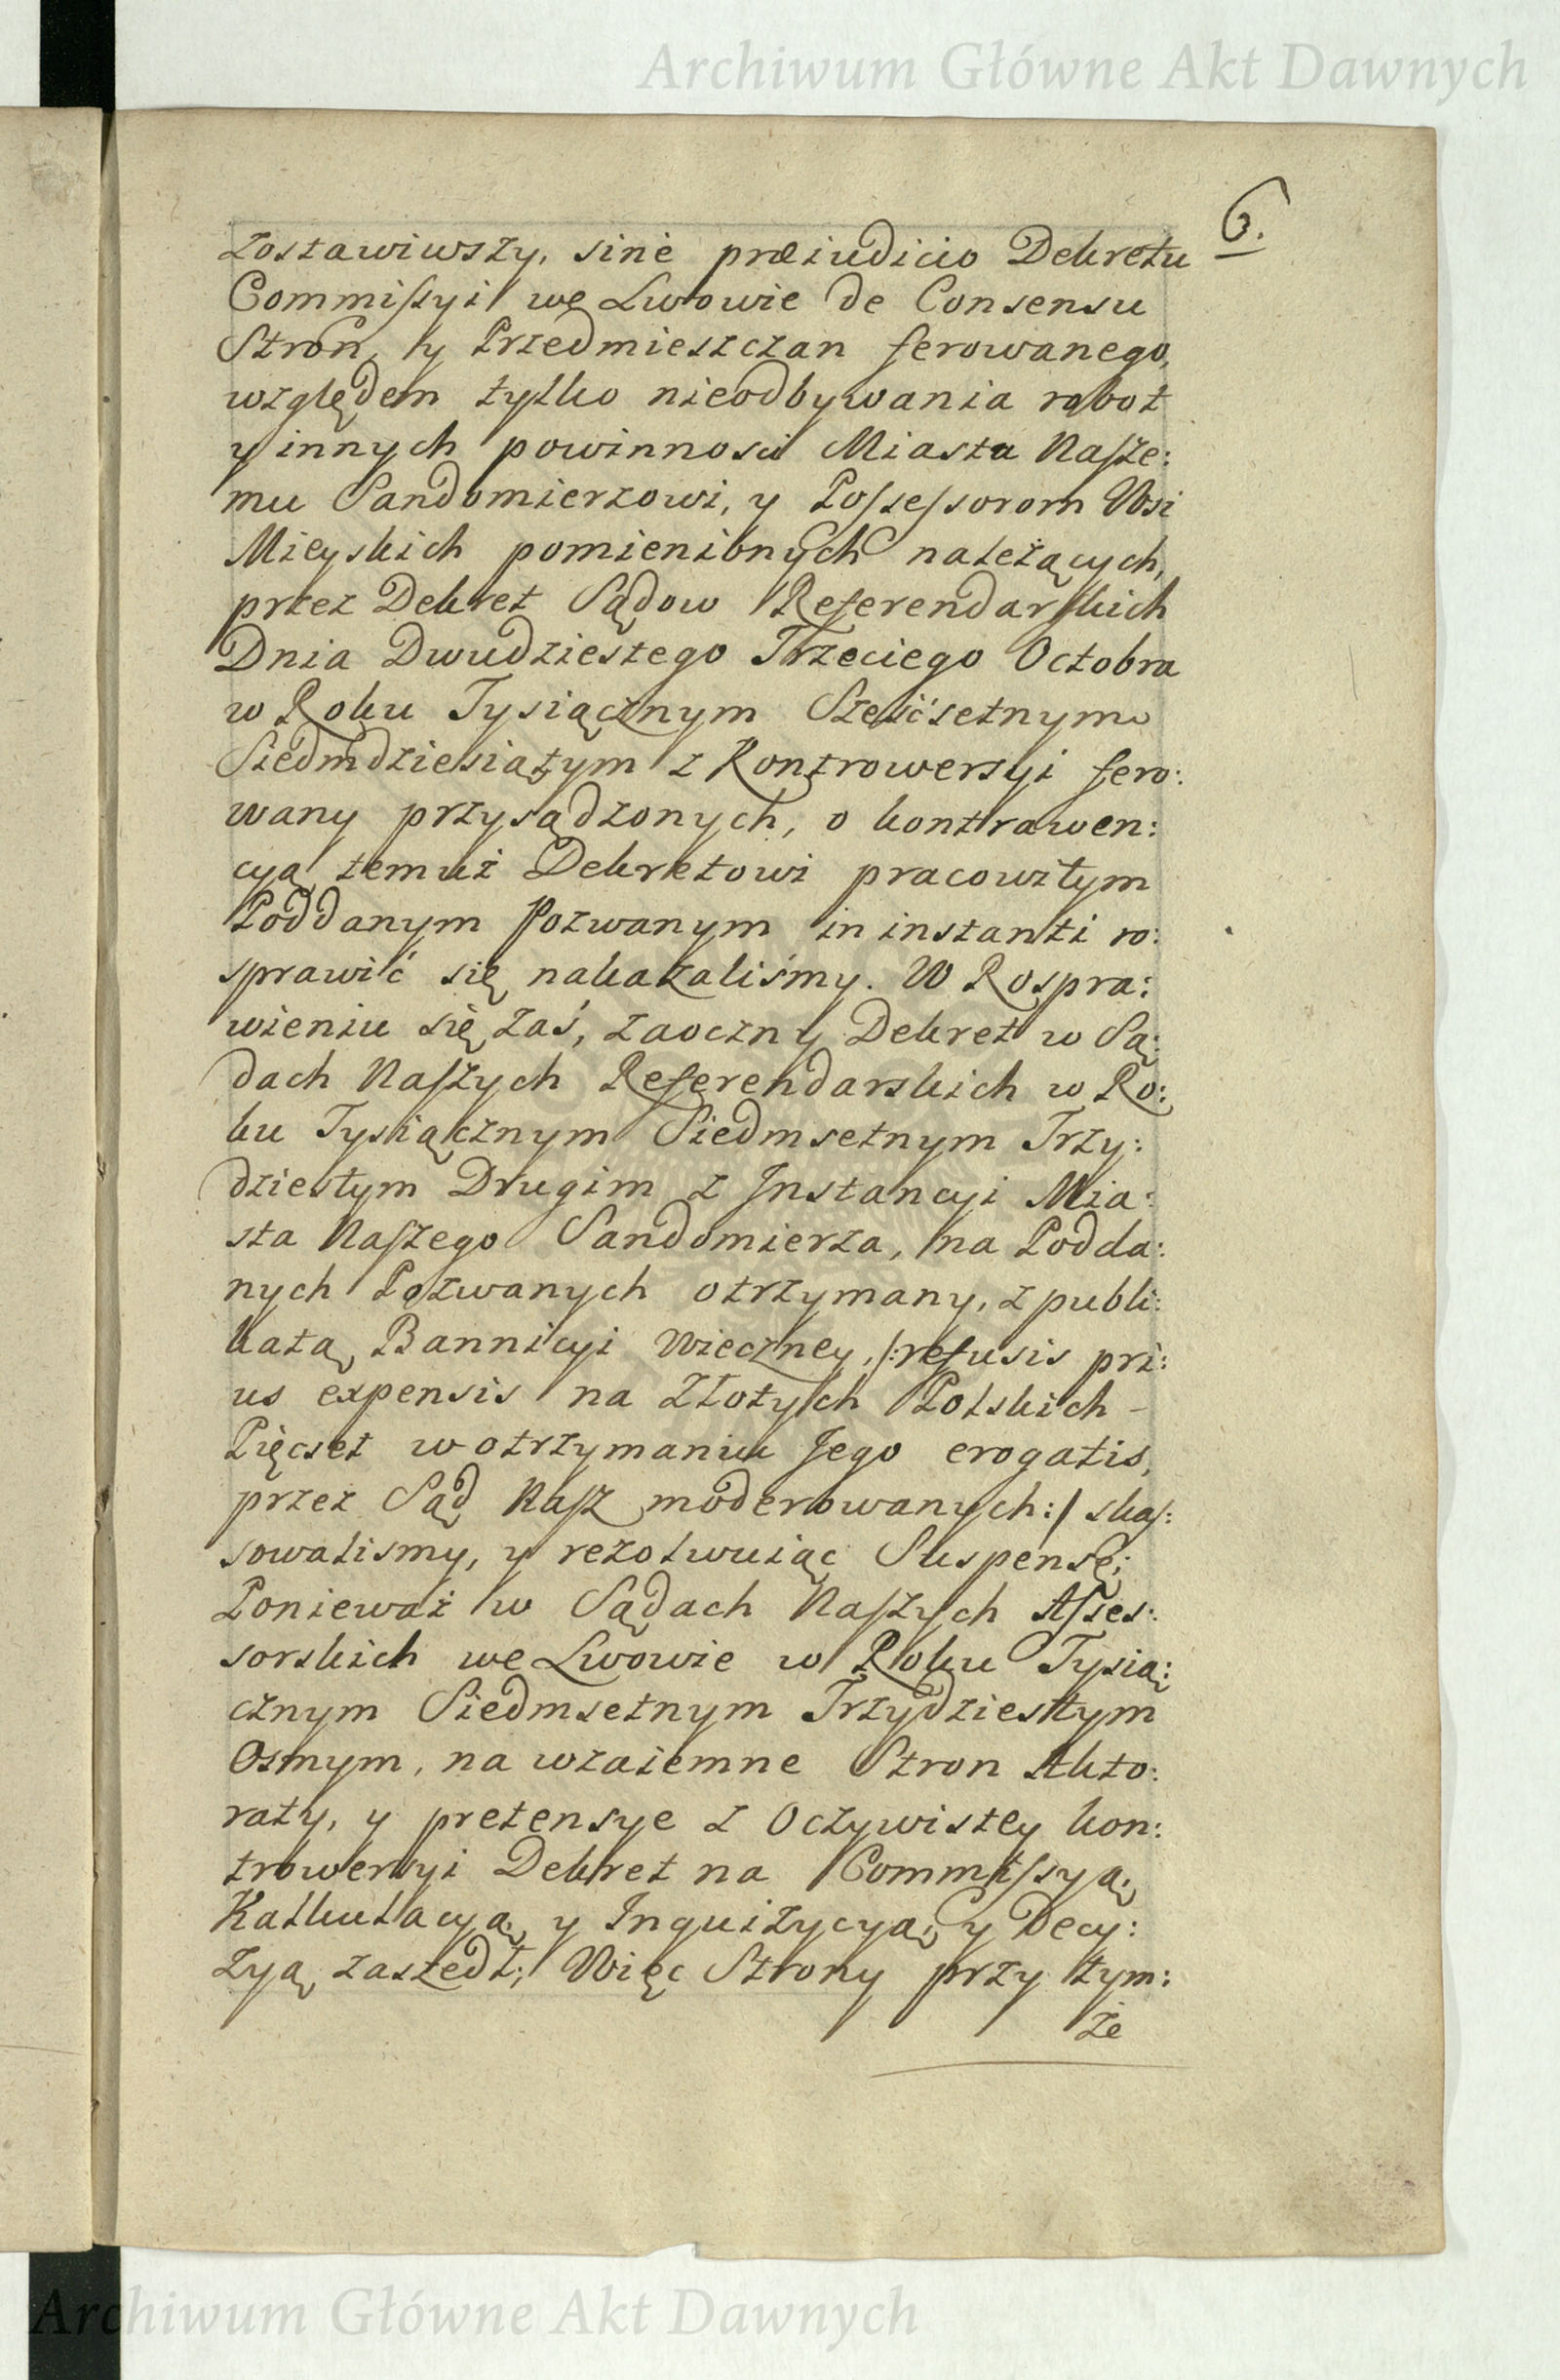 Archiwum Główne Akt Dawnych
6.
zostawiwszy, sine præiudicio Dekretu
Commiſsyi we Lwowie de Consensu
Stron, y Przedmieszczan ferowanego,
względem tylko nieodbywania robot
y innych powinnosci Miastu Naſze:
mu Sandomierzowi, y Poſseſsorom Wsi
Mieyskich pomienionych należących,
przez Dekret Sądow Referendarſkich
Dnia Dwudziestego Trzeciego Octobra
w Roku Tysiącznym Sześćsetnym
Siedmdziesiątym z Kontrowersyi fero:
wany przysądzonych, o kontrawen:
cyą temuż Dekretowi pracowitym
Poddanym Pozwanym in instanti ro:
sprawić się nakazaliśmy. W Rospra:
wieniu się zaś, zaoczny Dekret w Są:
dach Naſzych Referendarskich w Ro:
ku Tysiącznym Siedmsetnym Trzy:
dziestym Drugim z Jnstancyi Mia:
sta Naſzego Sandomierza, na Podda:
nych Pozwanych otrzymany, z publi:
katą Bannicyi Wieczney, /:refusis pri:
us expensis na Złotych Polskich -
Pięcset w otrzymaniu Jego erogatis,
przez Sąd Naſz moderowanych:/ skaſ:
sowalismy, y rezolwuiąc Suspensę;
Ponieważ w Sądach Naſzych Aſses:
sorskich we Lwowie w Roku Tysią:
cznym Siedmsetnym Trzydziestym
Osmym, na wzaiemne Stron Akto:
raty, y pretensye z Oczywistey kon:
trowersyi Dekret na Commiſsyą,
Kalkulacyą, y Inquizycyą, y Decy:
zyą zaszedł; Więc Strony przy tym:
że
Archiwum Główne Akt Dawnych